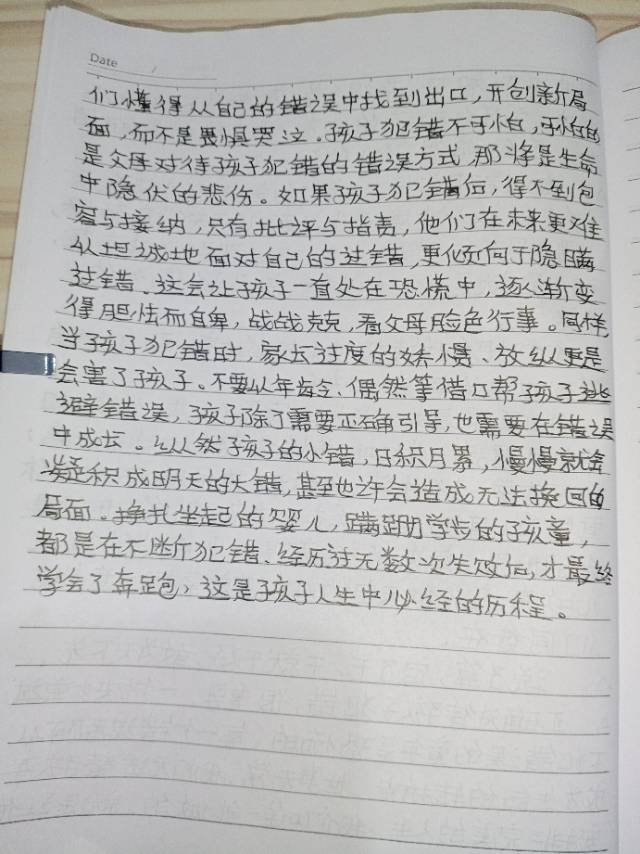 Date /
们懂得从自己的错误中找到出口，开创新局
面，而不是畏惧哭泣。孩子犯错不可怕，可怕的
是父母对待孩子犯错的错误方式，那将是生命
中隐伏的悲伤。如果孩子犯错后，得不到包
容与接纳，只有批评与指责，他们在未来更难
从坦诚地面对自己的过错，更倾向于隐瞒
过错、这会让孩子一直处在恐慌中，逐渐变
得胆怯而自卑，战战兢兢，看父母脸色行事。同样
当孩子犯错时，家长过度的娇惯、放纵更是
会害了孩子。不要以年龄、偶然等借口帮孩子逃
避错误，孩子除了需要正确引导，也需要在错误
中成长。纵然孩子的小错，日积月累，慢慢就会
累积成明天的大错，甚至也许会造成无法挽回的
局面。挣扎坐起的婴儿，蹒跚学步的孩童，
都是在不断犯错、经历过无数次失败后，才最终
学会了奔跑，这是孩子人生中必经的历程。